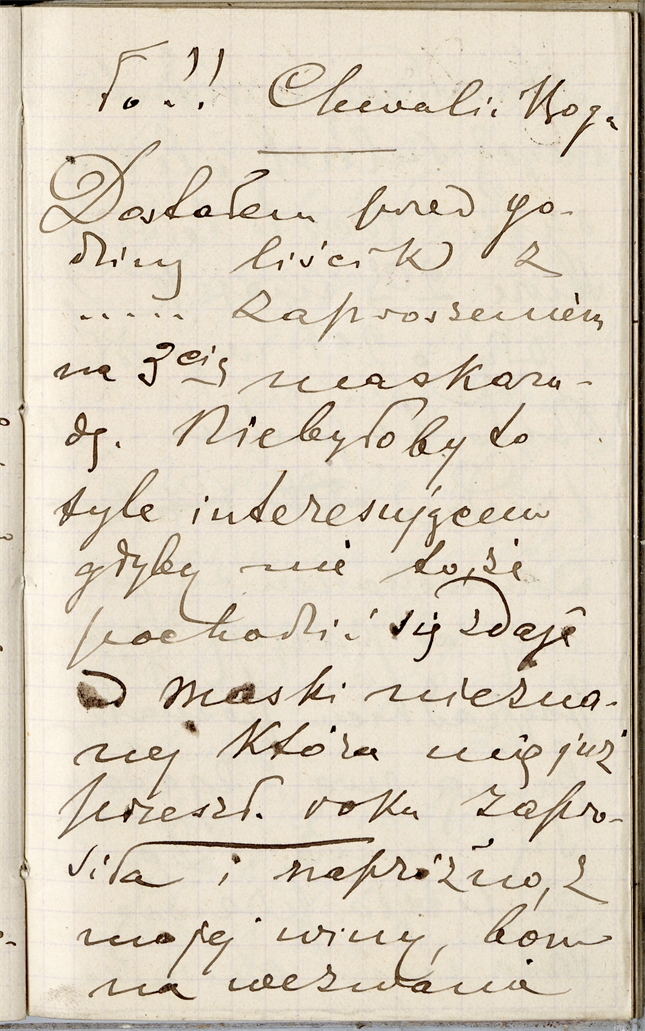 To..!! Chwalić Boga
Dostałem przed go-
dziną liścik z
..... zaproszeniem
na 3cią maskara-
dę. Niebyłoby to
tyle interesującem
gdyby nie to, że
pochodzić się zdaje
od maski niezna-
nej która mię już
przeszł. roku zapro-
siła i napróżno, z
mojej winy, bom
na wezwanie